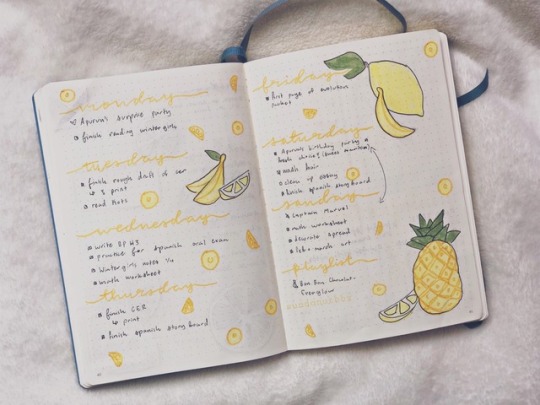 monday
Apurva's surprise party
finish reading wintergirls
tuesday
finish rough draft of cer
↳ print
read
wednesday
write
practice for spanish oral exam
wintergirls notes
math worksheet
thursday
finish CER
↳ print
finish spanish storyboard
friday
first page of evolution
packet
saturday
Apurva's birthday party
wash hair
clean up
finish spanish storyboard
sunday
captain marvel
math worksheet
decorate spread
lab + march art
playlist
Bon Bon Chocolat -
Everglow